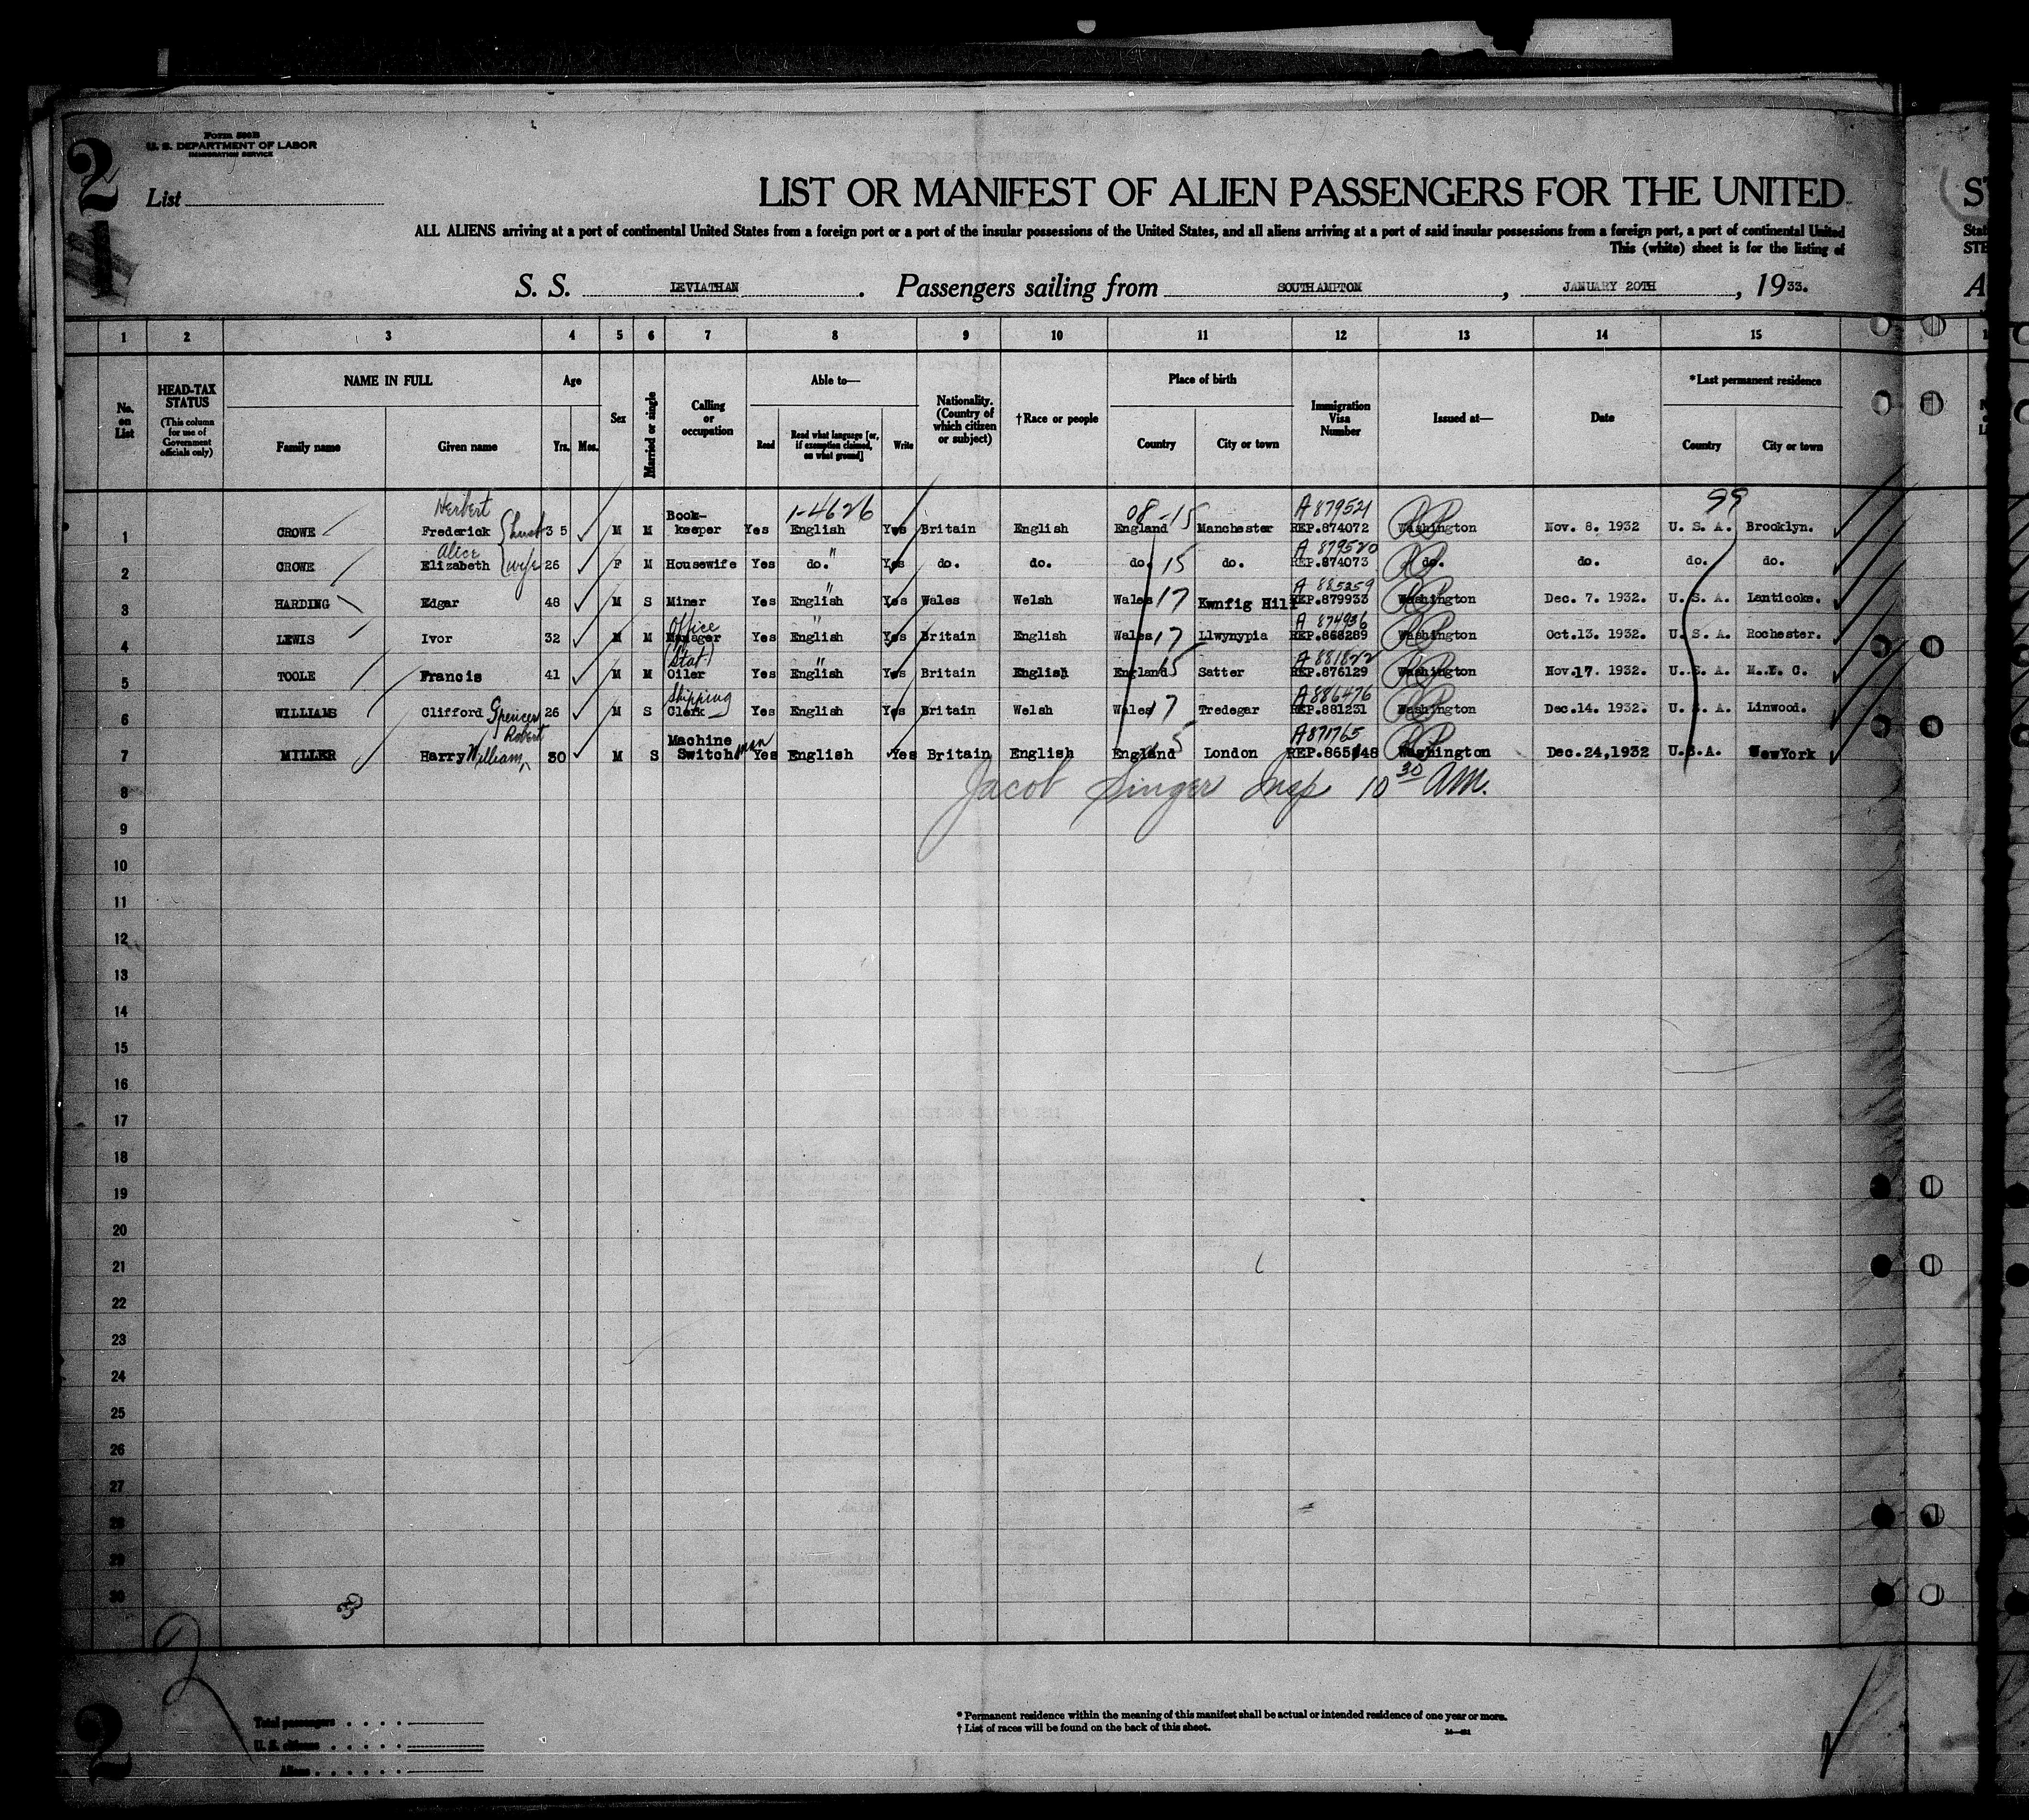 2
Form 500B
U. S. DEPARTMENT OF LABOR
IMMIGRATION SERVICE
List
LIST OR MANIFEST OF ALIEN PASSENGERS FOR THE UNITED
ALL ALIENS arriving at a port of continental United States from a foreign port or a port of the insular possessions of the United States, and all aliens arriving at a port of said insular possessions from a foreign port, a port of continental United
This (white) sheet is for the listing of
S. S. LEVIATHAN. Passengers sailing from SOUTHAMPTON, JANUARY 20TH, 1933.
1 2 3 4 5 6 7 8 9 10 11 12 13 14 15
No. on List
HEAD-TAX STATUS
(This column for use of Government officials only)
NAME IN FULL
Family name Given name
Age
Yrs. Mos.
Sex
Married or single
Calling or occupation
Able to—
Read
Read what language [or, if exemption claimed, on what ground]
Write
Nationality. (Country of which citizen or subject)
†Race or people
Place of birth
Country City or town
Immigration Visa Number
Issued at—
Date
*Last permanent residence
Country City or town
Herbert Book- 1-4626 08-15 A 879521 99
1 CROWE Frederick husb 35 M M keeper Yes English Yes Britain English England Manchester REP.874072 Washington Nov. 8. 1932 U. S. A. Brooklyn.
Alice " A 879520
2 CROWE Elizabeth wife 26 F M Housewife Yes do. Yes do. do. do. 15 do. REP.874073 do. do. do. do.
" A 885259
3 HARDING Edgar 48 M S Miner Yes English Yes Wales Welsh Wales 17 Kwnfig Hill REP.879933 Washington Dec. 7. 1932. U. S. A. Lanticoke.
Office " A 874936
4 LEWIS Ivor 32 M M Manager Yes English Yes Britain English Wales 17 Llwynypia REP.868289 Washington Oct.13. 1932. U. S. A. Rochester.
(Stat) " A 881822
5 TOOLE Francis 41 M M Oiler Yes English Yes Britain English England 15 Satter REP.876129 Washington Nov.17. 1932. U. S. A. N.Y. C.
Shipping A 886476
6 WILLIAMS Clifford Spencer 26 M S Clerk Yes English Yes Britain Welsh Wales 17 Tredegar REP.881231 Washington Dec.14. 1932. U. S. A. Linwood.
Robert Machine A871765
7 MILLER Harry William 30 M S Switch man Yes English Yes Britain English England 15 London Washington Dec.24,1932 U.S.A. NewYork
Jacob Singer Insp 10 30 AM.
8
9
10
11
12
13
14
15
16
17
18
19
20
21
22
23
24
25
26
27
28
29
30
2
2
Total passengers
U. S. citizens
Aliens
* Permanent residence within the meaning of this manifest shall be actual or intended residence of one year or more.
† List of races will be found on the back of this sheet.